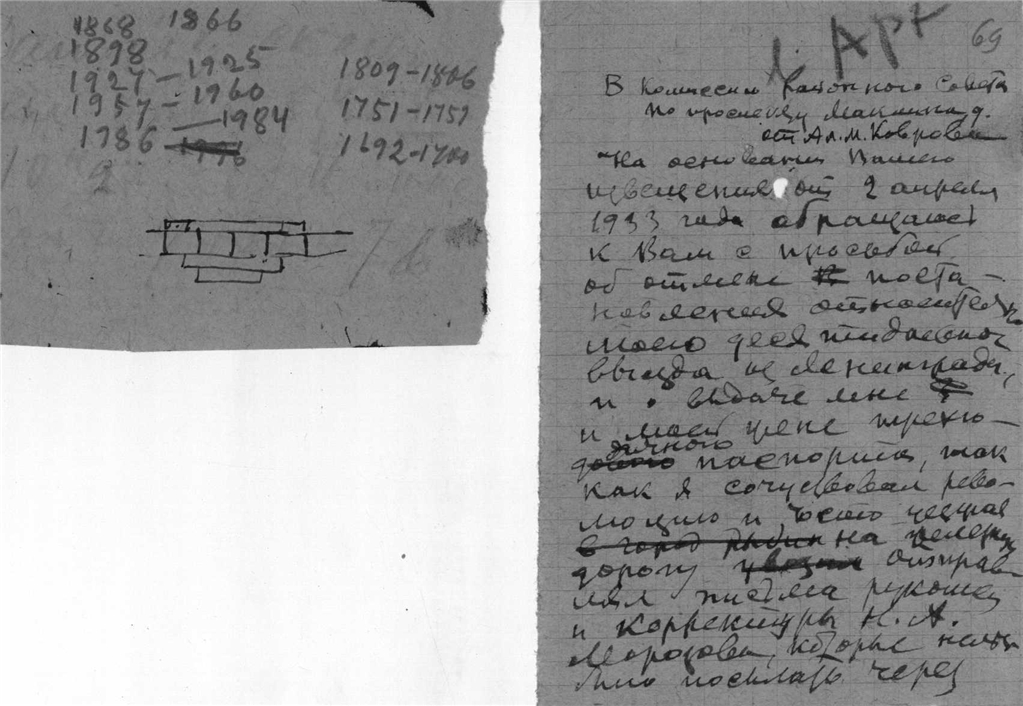 1868 1866
1898
1927 — 1925
1957 — 1960
1786 — 1984
2
1809-1806
1751-1757
1692-1700
Арх
69
В Комиссии Районного Совета
по проспекту
от Ал. М. Коврова
На основании Вашего
извещения от 2 апреля
1933 года обращаюсь
к Вам с просьбой
об отмене поста-
новления относительно
моего десятидневного
выезда из Ленинграда,
и о выдаче мне
и моей жене трехго-
дичного
паспорта, так
как я сочувствовал рево-
люцию и часто
в город на железную
дорогу отправ-
лял письма рукописи
и корректуры Н. А.
Морозова, которые нельзя
было посылать через